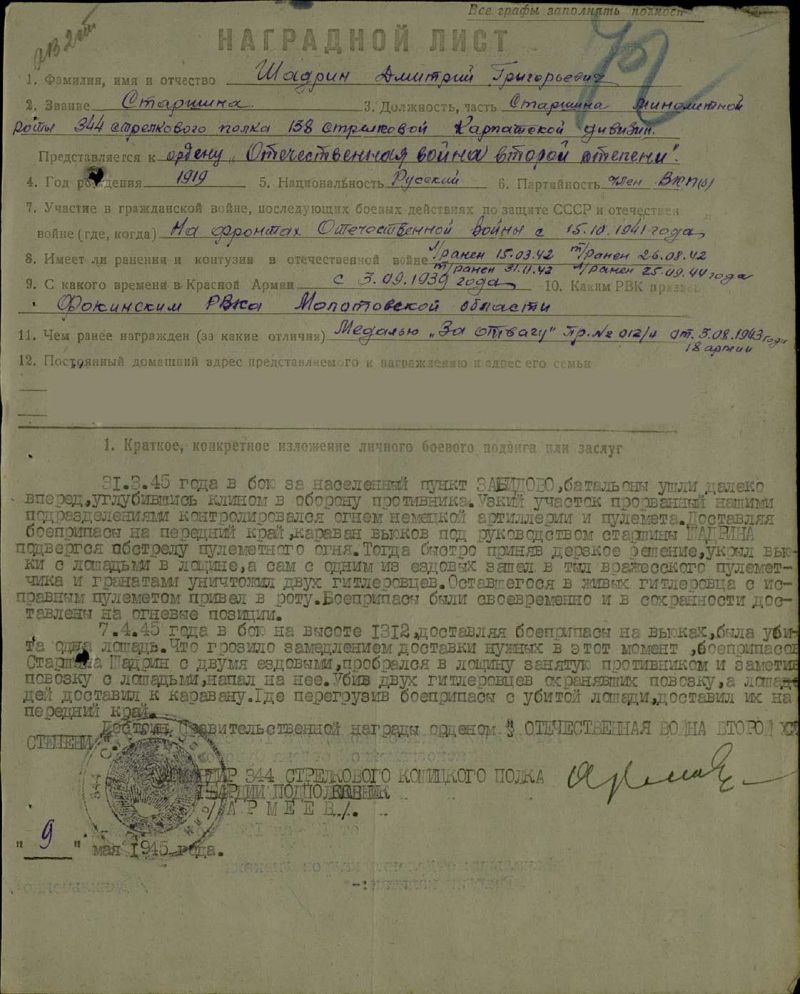 Все графы заполнять полност
НАГРАДНОЙ ЛИСТ
1. Фамилия, имя и отчество Шадрин Дмитрий Григорьевич
2. Звание Старшина 3. Должность, часть Старшина минометной
роты 344 стрелкового полка 138 стрелковой Карпатской дивизии.
Представляется к ордену „Отечественная война второй степени".
4. Год рождения 1919 5. Национальность Русский 6. Партийность член ВКП(б)
7. Участие в гражданской войне, последующих боевых действиях по защите СССР и отечествен
войне (где, когда) На фронтах Отечественной войны с 15.10.1941 года
8. Имеет ли ранения и контузии в отечественной войне л/ранен 15.03.42 т/ранен 26.08.42
т/ранен 31.11.42 л/ранен 25.09.44 года
9. С какого времени в Красной Армии с 3.09.1939 года 10. Каким РВК призван
Фокинским РВКа Молотовской области
11. Чем ранее награжден (за какие отличия) Медалью „За отвагу" Пр. № 012/н от 3.08.1943 года
18 армии
12. Постоянный домашний адрес представляемого к награждению и адрес его семьи
1. Краткое, конкретное изложение личного боевого подвига или заслуг
31.3.45 года в бою за населенный пункт ,батальоны ушли далеко
вперед,углубившись клином в оборону противника.Узкий участок прорванный нашими
подразделениями контролировался огнем немецкой артиллерии и пулемета.Доставляя
боеприпасы на передний край,караван вьюков под руководством старшины ШАДРИНА
подвергся обстрелу пулеметного огня.Тогда быстро приняв дерзкое решение,укрыл вью-
ки с лошадьми в лощине,а сам с одним из ездовых зашел в тыл вражесского пулемет-
чика и гранатами уничтожил двух гитлеровцев.Оставшегося в живых гитлеровца с ис-
правным пулеметом привел в роту.Боеприпасы были своевременно и в сохранности дос-
тавлены на огневые позиции.
7.4.45 года в бою на высоте 1312,доставляя боеприпасы на вьюках,была уби-
та одна лошадь.Что грозило замедлением доставки нужных в этот момент ,боеприпасов
Старшина Шадрин с двумя ездовыми,пробрался в лощину занятую противником и заметив
повозку с лошадьми,напал на нее.Убив двух гитлеровцев охранявших повозку,а лошад-
дей доставил к каравану.Где перегрузив боеприпасы с убитой лошади,доставил их на
передний край.
Достоин Правительственной награды орденом ОТЕЧЕСТВЕННАЯ ВОЙНА ВТОРОЙ
СТЕПЕНИ
КОМАНДИР 344 СТРЕЛКОВОГО ПОЛКА
ГВАРДИИ ПОДПОЛКОВНИК
/АРМЕЕВ/.
"9" мая 1945 года.